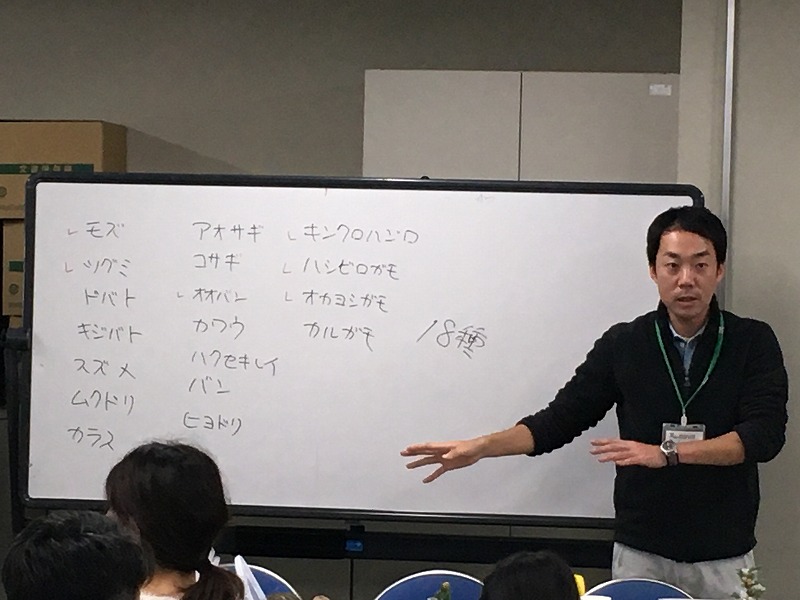 レモズ
レツグミ
ドバト
キジバト
スズメ
ムクドリ
カラス
アオサギ
コサギ
レオオバン
カワウ
ハクセキレイ
バン
ヒヨドリ
レキンクロハジロ
レハシビロガモ
レオカヨシガモ
カルガモ
18種